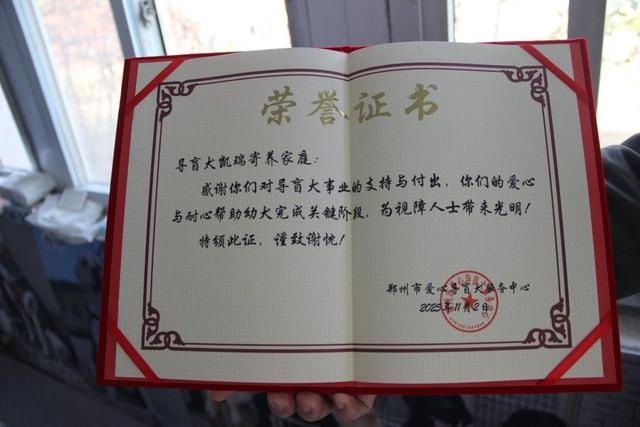 荣誉证书
导盲犬凯瑞寄养家庭:
感谢你们对导盲犬事业的支持与付出,你们的爱心
与耐心帮助幼犬完成关键阶段,为视障人士带来光明!
特颁此证,谨致谢忱!
郑州市爱心导盲犬服务中心
2025年11月2日